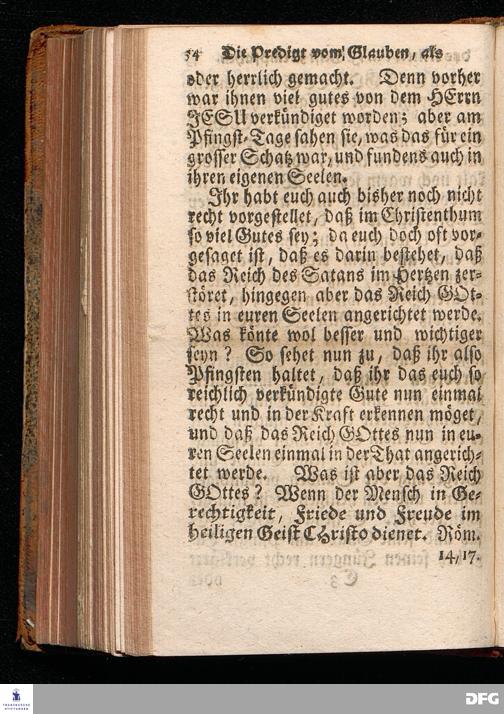 54 Die Predigt vom Glauben, als
oder herrlich gemacht. Denn vorher
war ihnen viel gutes von dem HErrn
JESU verkündiget worden; aber am
Pfingst-Tage sahen sie, was das für ein
grosser Schatz war, und fundens auch in
ihren eigenen Seelen.
Ihr habt euch auch bisher noch nicht
recht vorgestellet, daß im Christenthum
so viel Gutes sey; da euch doch oft vor-
gesaget ist, daß es darin bestehet, daß
das Reich des Satans im Hertzen zer-
störet, hingegen aber das Reich GOt-
tes in euren Seelen angerichtet werde.
Was könte wol besser und wichtiger
seyn? So sehet nun zu, daß ihr also
Pfingsten haltet, daß ihr das euch so
reichlich verkündigte Gute nun einmal
recht und in der Kraft erkennen möget,
und daß das Reich GOttes nun in eu-
ren Seelen einmal in der That angerich-
tet werde. Was ist aber das Reich
GOttes? Wenn der Mensch in Ge-
rechtigkeit, Friede und Freude im
heiligen Geist CHristo dienet. Röm.
14, 17.
DFG